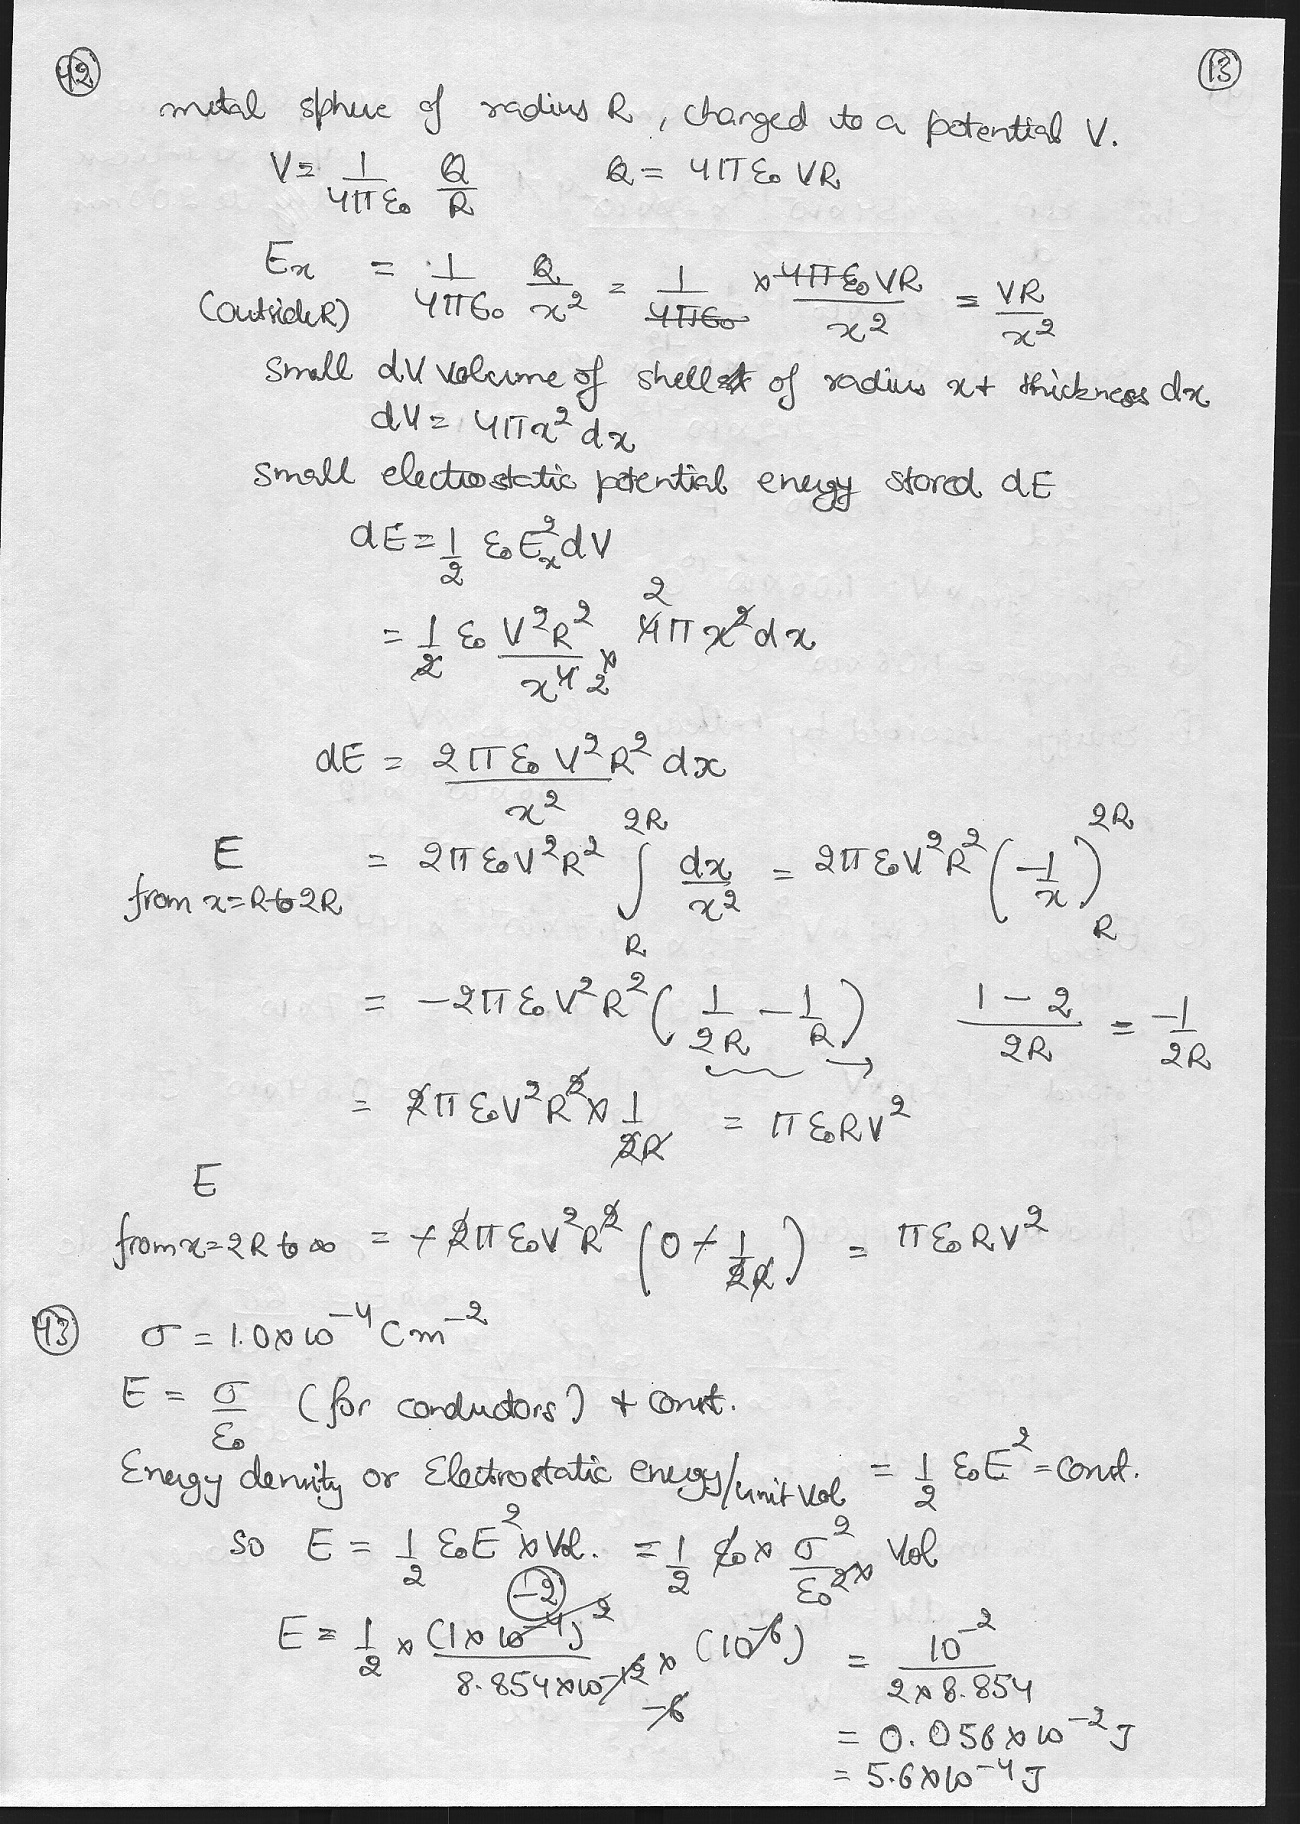 42 13
metal sphere of radius R, charged to a potential V.
V = 1/4πε₀ Q/R Q = 4πε₀ VR
Ex (outside R) = 1/4πε₀ Q/x² = 1/4πε₀ × 4πε₀VR/x² = VR/x²
Small dV volume of shell of radius x + thickness dx
dV = 4πx² dx
Small electrostatic potential energy stored dE
dE = 1/2 ε₀ Ex² dV
= 1/2 ε₀ V²R²/x⁴ × 4πx² dx
dE = 2πε₀ V²R² dx/x²
E from x=R to 2R = 2πε₀V²R² ∫_R^2R dx/x² = 2πε₀V²R² (-1/x)_R^2R
= -2πε₀V²R² (1/2R - 1/R) 1-2/2R = -1/2R
= 2πε₀V²R² × 1/2R = πε₀RV²
E
from x=2R to ∞ = +2πε₀V²R² (0 + 1/2R) = πε₀RV²
43 σ = 1.0×10⁻⁴ Cm⁻²
E = σ/ε₀ (for conductors) + const.
Energy density or Electrostatic energy/unit vol = 1/2 ε₀E² = const.
so E = 1/2 ε₀E² × Vol. = 1/2 ε₀ × σ²/ε₀² × Vol
E = 1/2 × (1×10⁻⁴)²/8.854×10⁻¹² × (10⁻⁶) = 10⁻²/2×8.854
= 0.056×10⁻² J
= 5.6×10⁻⁴ J